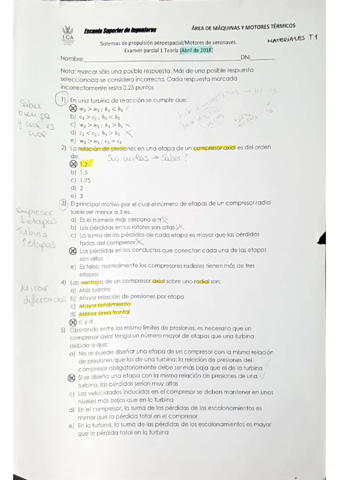 Escuela Superior de Ingenieros
ÁREA DE MÁQUINAS Y MOTORES TÉRMICOS
MATERIALES T1
Sistemas de propulsión aeroespacial/Motores de aeronaves.
Examen parcial 1 Teoría (Abril de 2018)
Nombre: DNI
Nota: marcar sólo una posible respuesta. Más de una posible respuesta
seleccionada se considera incorrecta. Cada respuesta marcada
incorrectamente resta 0.25 puntos
1) En una turbina de reacción se cumple que:
2) La relación de presiones en una etapa de un compresor axial es del orden
de:
a) 1.2
b) 1.5
c) 1.75
d) 2
e) 3
3) El principal motivo por el cual el número de etapas de un compresor radial
suele ser menor a 3 es:
a) Es el número más cercano a π
b) Las pérdidas en los rotores son altas
c) La suma de las pérdidas de cada etapa es mayor que las pérdidas
todas del compresor
Las pérdidas en los conductos que conectan cada una de las etapas
son altas
e) Es falso, normalmente los compresores radiales tienen más de tres
etapas
Compresor
Turbina
1 etapas
4) Las ventajas de un compresor axial sobre uno radial son:
a) Más barato
b) Mayor relación de presiones por etapa
c) Mayor rendimiento
d) Menor área frontal
c y d
Mirar
diferencias
5) Operando entre los mismos límites de presiones, es necesario que un
compresor axial tenga un número mayor de etapas que una turbina
debido a que:
a) No se puede diseñar una etapa de un compresor con la misma relación
de presiones que las de una turbina; la relación de presiones del
compresor obligatoriamente debe ser más baja que el de la turbina
Si se diseña una etapa con la misma relación de presiones de una
turbina, las pérdidas serían muy altas
c) Las velocidades inducidas en el compresor se deben mantener en unos
niveles más bajos que en la turbina
d) En el compresor, la suma de las pérdidas de los escalonamientos es
menor que la pérdida total en el compresor
e) En la turbina, la suma de las pérdidas de los escalonamientos es mayor
que la pérdida total en la turbina